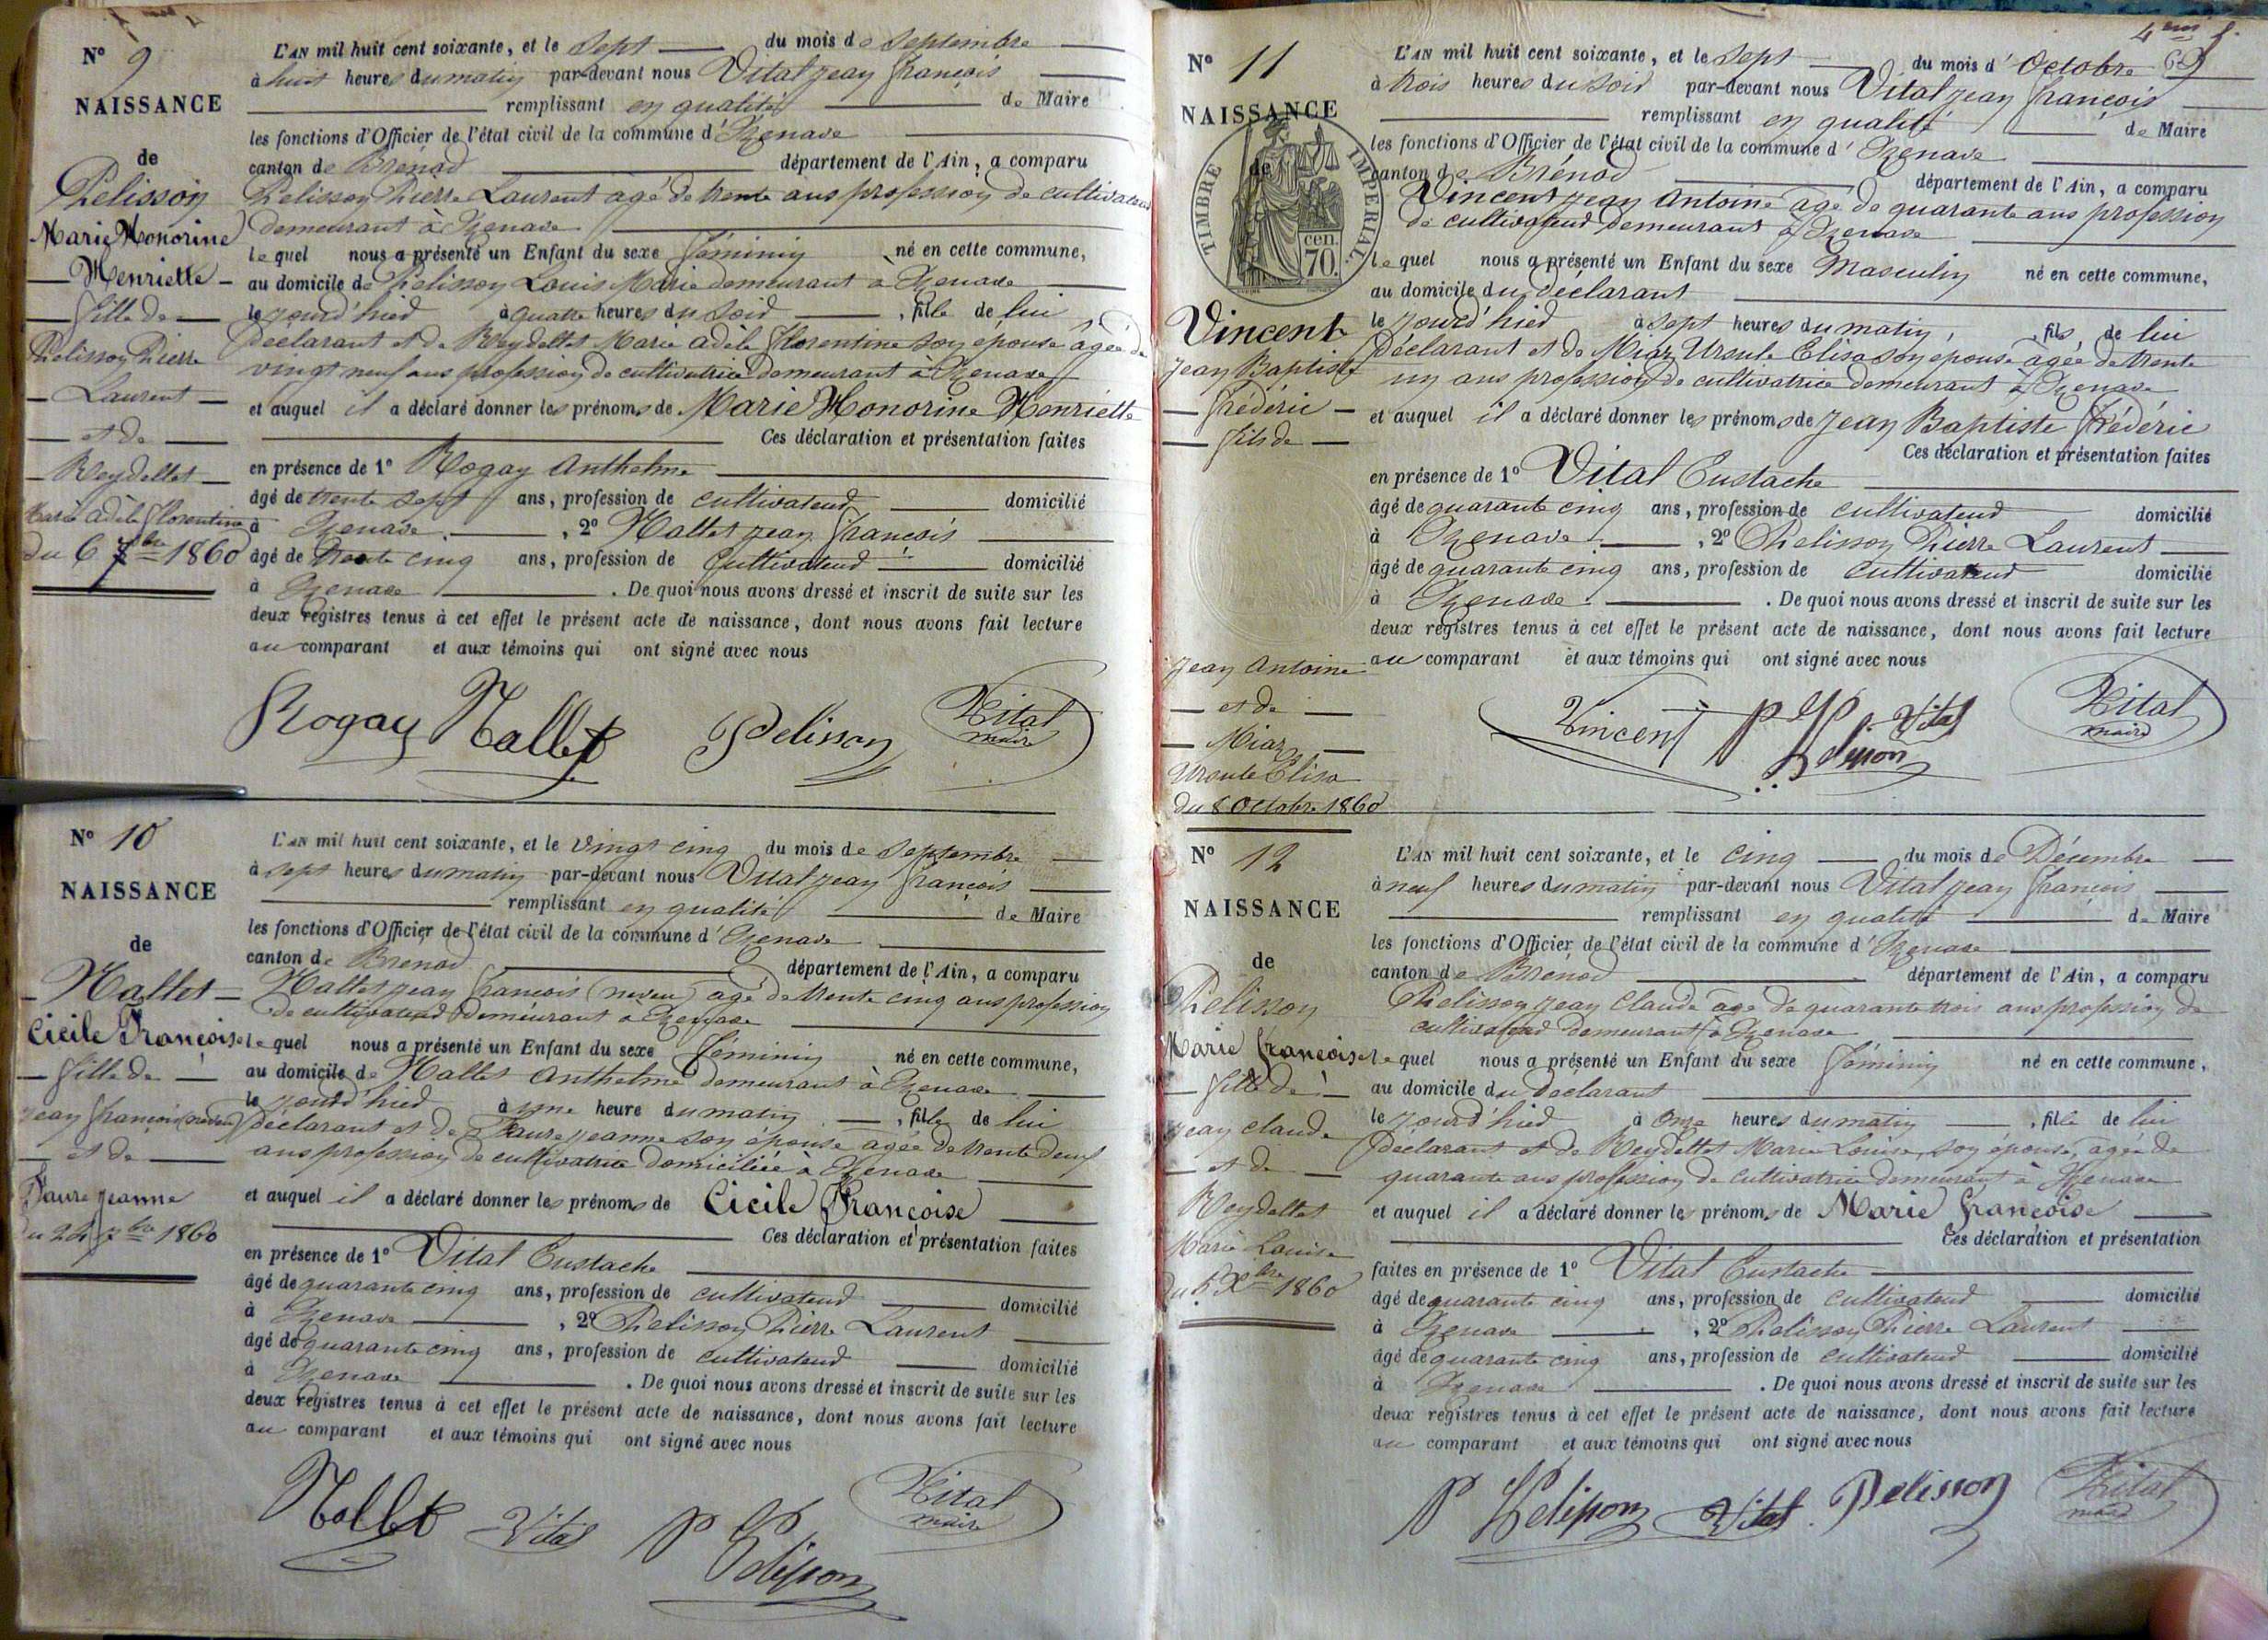 N° 9
NAISSANCE
de
Pelisson
Marie Honorine
Henriette
fille de
Pelisson Pierre
Laurent
et de
Reydellet
Marie adèle florentine
du 6 7bre 1860
L'AN mil huit cent soixante, et le sept du mois de Septembre
à huit heures du matin par-devant nous Vital jean françois
remplissant en qualité de Maire
les fonctions d'Officier de l'état civil de la commune d'Izenave
canton de Brénod département de l'Ain, a comparu
Pelisson Pierre Laurent agé de trente ans profession de cultivateur
demeurant à Izenave
lequel nous a présenté un Enfant du sexe féminin né en cette commune,
au domicile de Pelisson Louis Marie demeurant à Izenave
le jourd'hier à quatre heures du soir, fille de lui
Déclarant et de Reydellet Marie adèle florentine son épouse âgée de
vingt neuf ans profession de cultivatrice demeurant à Izenave
et auquel il a déclaré donner les prénoms de Marie Honorine Henriette
Ces déclaration et présentation faites
en présence de 1° Rogay Anthelme
âgé de trente sept ans, profession de cultivateur domicilié
à Izenave, 2° Hallet jean françois
âgé de trente cinq ans, profession de Cultivateur domicilié
à Izenave. De quoi nous avons dressé et inscrit de suite sur les
deux registres tenus à cet effet le présent acte de naissance, dont nous avons fait lecture
au comparant et aux témoins qui ont signé avec nous
Rogay Hallet Pelisson Vital
maire
N° 10
NAISSANCE
de
Hallet
Cicile Françoise
fille de
jean françois (neveu)
et de
Faure jeanne
du 24 7bre 1860
L'AN mil huit cent soixante, et le vingt cinq du mois de Septembre
à sept heures du matin par-devant nous Vital jean françois
remplissant en qualité de Maire
les fonctions d'Officier de l'état civil de la commune d'Izenave
canton de Brénod département de l'Ain, a comparu
Hallet jean françois (neveu) agé de trente cinq ans profession
de cultivateur demeurant à Izenave
lequel nous a présenté un Enfant du sexe féminin né en cette commune,
au domicile de Hallet Anthelme demeurant à Izenave
le jourd'hier à une heure du matin, fille de lui
déclarant et de Faure jeanne son épouse agée de trente deux
ans profession de cultivatrice domiciliée à Izenave
et auquel il a déclaré donner les prénoms de Cicile Françoise
Ces déclaration et présentation faites
en présence de 1° Vital Eustache
âgé de quarante cinq ans, profession de cultivateur domicilié
à Izenave, 2° Pelisson Pierre Laurent
âgé de quarante cinq ans, profession de cultivateur domicilié
à Izenave. De quoi nous avons dressé et inscrit de suite sur les
deux registres tenus à cet effet le présent acte de naissance, dont nous avons fait lecture
au comparant et aux témoins qui ont signé avec nous
Hallet Vital P L Pelisson Vital
maire
4eme f.
N° 11
NAISSANCE
de
TIMBRE IMPERIAL
70 cen.
Vincent
Jean Baptiste
frédéric
fils de
Jean Antoine
et de
Miaz
Ursule Elisa
du 8 Octobre 1860
L'AN mil huit cent soixante, et le Sept du mois d'Octobre
à trois heures du soir par-devant nous Vital jean françois
remplissant en qualité de Maire
les fonctions d'Officier de l'état civil de la commune d'Izenave
canton de Brénod département de l'Ain, a comparu
Vincent jean Antoine agé de quarante ans profession
de cultivateur demeurant à Izenave
lequel nous a présenté un Enfant du sexe Masculin né en cette commune,
au domicile du déclarant
le jourd'hier à sept heures du matin, fils de lui
Déclarant et de Miaz Ursule Elisa son épouse agée de trente
un ans profession de cultivatrice demeurant à Izenave
et auquel il a déclaré donner les prénoms de jean Baptiste frédéric
Ces déclaration et présentation faites
en présence de 1° Vital Eustache
âgé de quarante cinq ans, profession de cultivateur domicilié
à Izenave, 2° Pelisson Pierre Laurent
âgé de quarante cinq ans, profession de cultivateur domicilié
à Izenave. De quoi nous avons dressé et inscrit de suite sur les
deux registres tenus à cet effet le présent acte de naissance, dont nous avons fait lecture
au comparant et aux témoins qui ont signé avec nous
Vincent P L Pelisson Vital Vital
maire
N° 12
NAISSANCE
de
Pelisson
Marie françoise
fille de
jean claude
et de
Reydellet
Marie Louise
du 5 Xbre 1860
L'AN mil huit cent soixante, et le cinq du mois de Décembre
à neuf heures du matin par-devant nous Vital jean françois
remplissant en qualité de Maire
les fonctions d'Officier de l'état civil de la commune d'Izenave
canton de Brénod département de l'Ain, a comparu
Pelisson jean Claude agé de quarante trois ans profession de
cultivateur demeurant à Izenave
lequel nous a présenté un Enfant du sexe féminin né en cette commune,
au domicile du Déclarant
le jourd'hier à onze heures du matin, fille de lui
Déclarant et de Reydellet Marie Louise, son épouse, agée de
quarante ans profession de cultivatrice demeurant à Izenave
et auquel il a déclaré donner les prénoms de Marie françoise
Ces déclaration et présentation
faites en présence de 1° Vital Eustache
âgé de quarante cinq ans, profession de cultivateur domicilié
à Izenave, 2° Pelisson Pierre Laurent
âgé de quarante cinq ans, profession de cultivateur domicilié
à Izenave. De quoi nous avons dressé et inscrit de suite sur les
deux registres tenus à cet effet le présent acte de naissance, dont nous avons fait lecture
au comparant et aux témoins qui ont signé avec nous
P L Pelisson Vital Pelisson Vital
maire